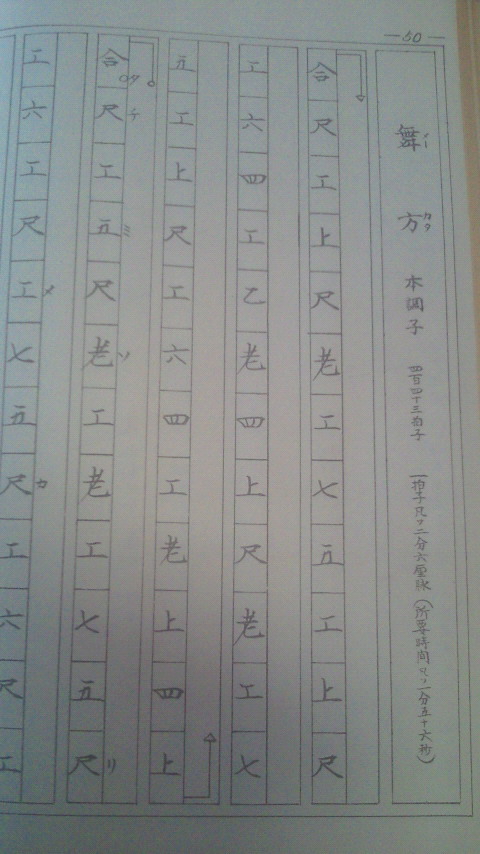 —50—
舞方 本調子 四百四十三拍子 一拍子凡ソ二分六厘脉(所要時間凡ソ一分五十六秒)
メー カタ
合尺工上尺老工七五工上尺
工六四工乙老四上尺老工七
五工上尺工六四工老上四上
合尺工五尺老工老工七五尺
チ ミ ソ リ
工六工尺工七五尺工六尺工
メ カ